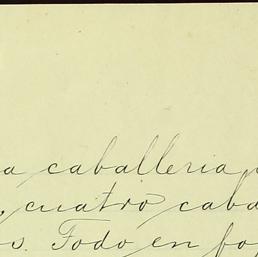 a caballeria,
, cuatro caba
s. Todo en fo